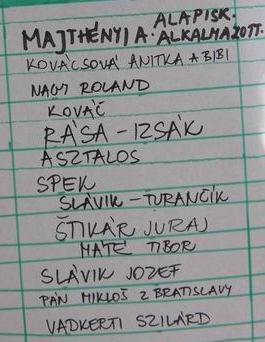 MAJTHÉNYI A. ALAPISK. ALKALMAZOTT.
KOVÁCSOVÁ ANITKA A BIBI
NAGY ROLAND
KOVÁČ
RÁSA - IZSÁK
ASZTALOS
SPEK
SLÁVIK - TURANČÍK
ŠTIKÁR JURAJ
MÁTÉ TIBOR
SLÁVIK JOZEF
PÁN MIKLOŠ Z BRATISLAVY
VADKERTI SZILÁRD